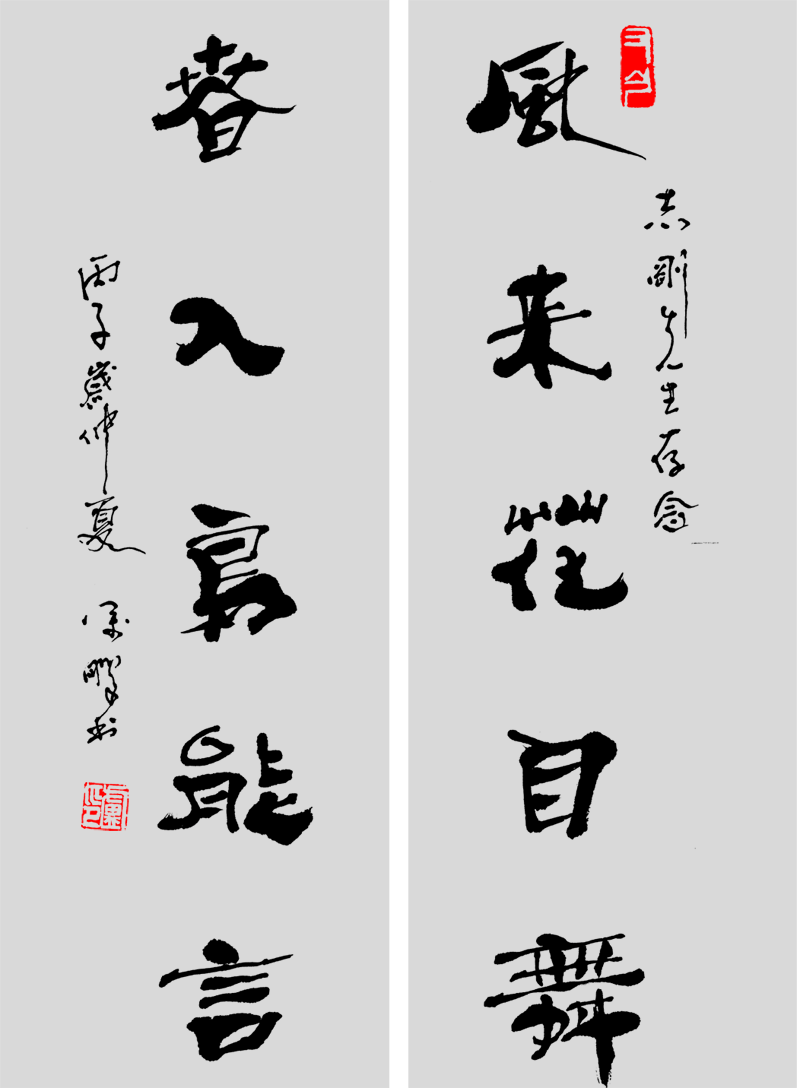 志剛先生存念
風来花自舞
春入鳥能言
丙子歲仲夏